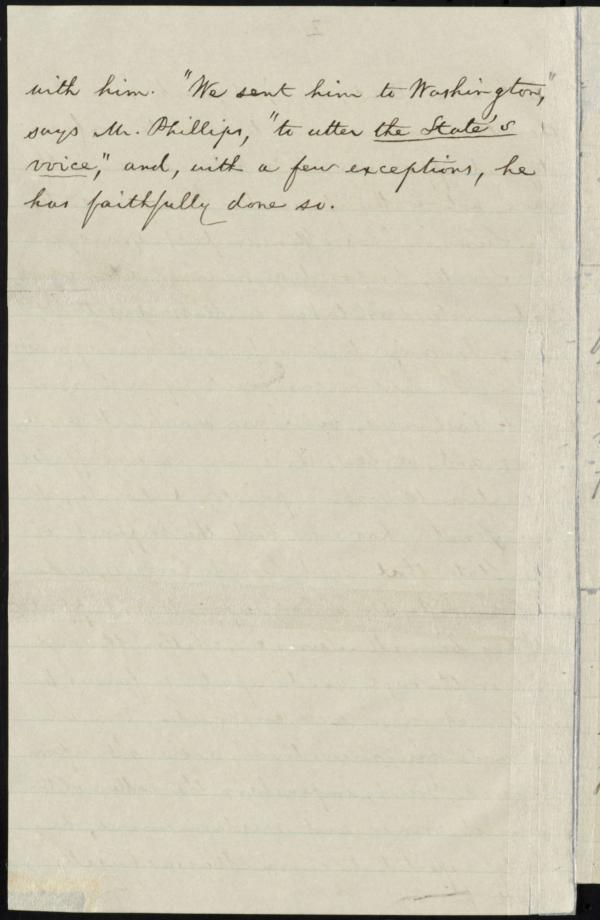 with him. "We sent him to Washington,"
says Mr. Phillips, "to utter the State's
voice," and, with a few exceptions, he
has faithfully done so.